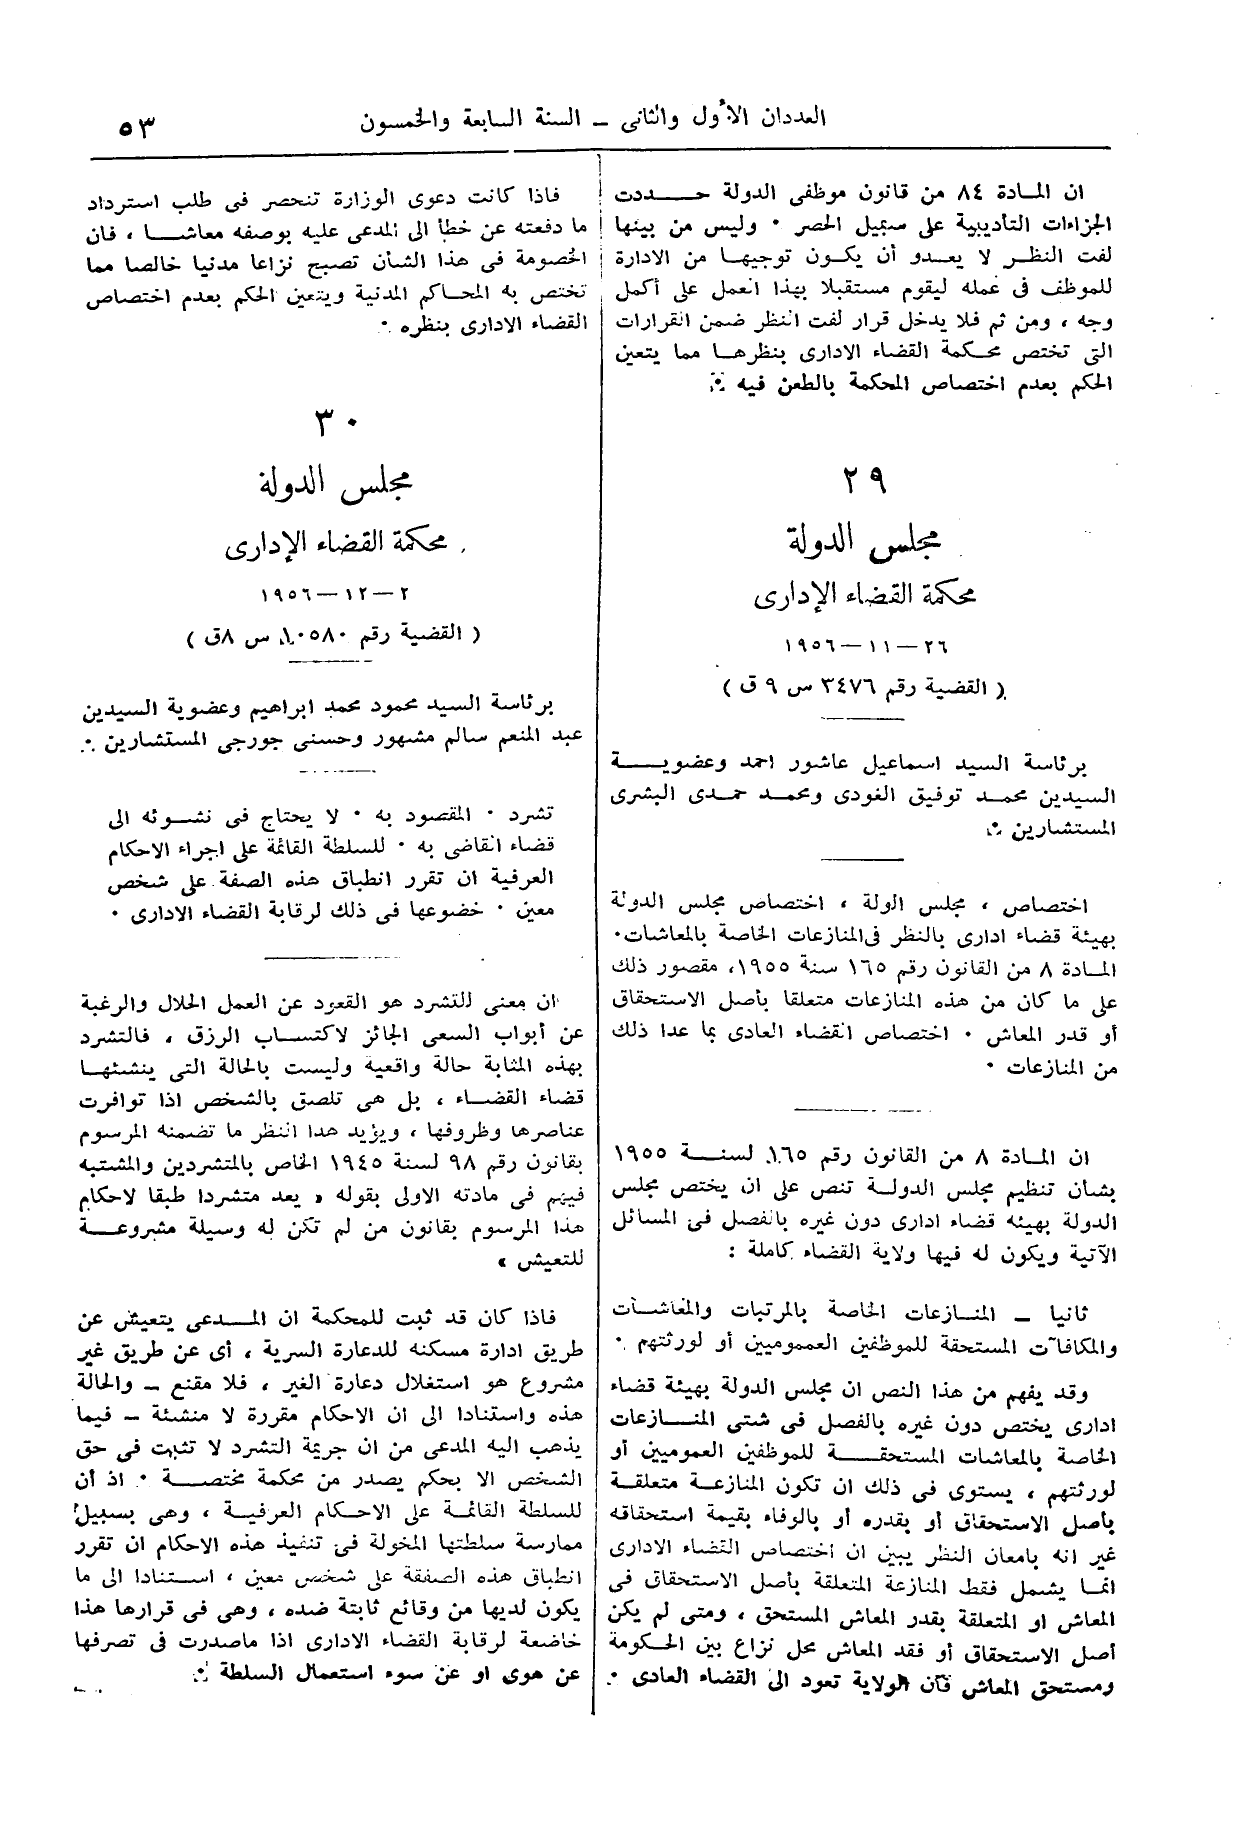 العددان الأول والثانى ــ السنة السابعة والخمسون
٥٣
ان المادة ٨٤ من قانون موظفى الدولة حددت
الجزاءات التأديبية على سبيل الحصر ٠ وليس من بينها
لفت النظر لا يعدو أن يكون توجيها من الادارة
للموظف فى عمله ليقوم مستقبلا بهذا العمل على أكمل
وجه ، ومن ثم فلا يدخل قرار لفت النظر ضمن القرارات
التى تختص محكمة القضاء الادارى بنظرها مما يتعين
الحكم بعدم اختصاص المحكمة بالطعن فيه .
٢٩
مجلس الدولة
محكمة القضاء الإدارى
٢٦ ــ ١١ ــ ١٩٥٦
( القضية رقم ٣٤٧٦ س ٩ ق )
برئاسة السيد اسماعيل عاشور احمد وعضوية
السيدين محمد توفيق الغودى ومحمد حمدى البشرى
المستشارين .
اختصاص ، مجلس الولة ، اختصاص مجلس الدولة
بهيئة قضاء ادارى بالنظر فى المنازعات الخاصة بالمعاشات٠
المادة ٨ من القانون رقم ١٦٥ سنة ١٩٥٥، مقصور ذلك
على ما كان من هذه المنازعات متعلقا بأصل الاستحقاق
أو قدر المعاش ٠ اختصاص القضاء العادى بما عدا ذلك
من المنازعات ٠
ان المادة ٨ من القانون رقم ١٦٥ لسنة ١٩٥٥
بشأن تنظيم مجلس الدولة تنص على ان يختص مجلس
الدولة بهيئه قضاء ادارى دون غيره بالفصل فى المسائل
الآتية ويكون له فيها ولاية القضاء كاملة :
ثانيا ــ المنازعات الخاصة بالمرتبات والمعاشات
والمكافآت المستحقة للموظفين العموميين أو لورثتهم ٠
وقد يفهم من هذا النص ان مجلس الدولة بهيئة قضاء
ادارى يختص دون غيره بالفصل فى شتى المنازعات
الخاصة بالمعاشات المستحقة للموظفين العموميين أو
لورثتهم ، يستوى فى ذلك ان تكون المنازعة متعلقة
بأصل الاستحقاق أو بقدره أو بالوفاء بقيمة استحقاقه
غير انه بامعان النظر يبين ان اختصاص القضاء الادارى
انما يشمل فقط المنازعة المتعلقة بأصل الاستحقاق فى
المعاش او المتعلقة بقدر المعاش المستحق ، ومتى لم يكن
أصل الاستحقاق أو فقد المعاش محل نزاع بين الحكومة
ومستحق المعاش فان الولاية تعود الى القضاء العادى ٠
فاذا كانت دعوى الوزارة تنحصر فى طلب استرداد
ما دفعته عن خطأ الى المدعى عليه بوصفه معاشا ، فان
الخصومة فى هذا الشأن تصبح نزاعا مدنيا خالصا مما
تختص به المحاكم المدنية ويتعين الحكم بعدم اختصاص
القضاء الادارى بنظره .
٣٠
مجلس الدولة
محكمة القضاء الإدارى
٢ ــ ١٢ ــ ١٩٥٦
( القضية رقم ١٠٥٨٠ س ٨ق )
برئاسة السيد محمود محمد ابراهيم وعضوية السيدين
عبد المنعم سالم مشهور وحسنى جورجى المستشارين .
تشرد ٠ المقصود به ٠ لا يحتاج فى نشوئه الى
قضاء القاضى به ٠ للسلطة القائمة على اجراء الاحكام
العرفية ان تقرر انطباق هذه الصفة على شخص
معين ٠ خضوعها فى ذلك لرقابة القضاء الادارى ٠
ان معنى للتشرد هو القعود عن العمل الحلال والرغبة
عن أبواب السعى الجائز لاكتساب الرزق ، فالتشرد
بهذه المثابة حالة واقعية وليست بالحالة التى ينشئها
قضاء القضاء ، بل هى تلصق بالشخص اذا توافرت
عناصرها وظروفها ، ويؤيد هذا النظر ما تضمنه المرسوم
بقانون رقم ٩٨ لسنة ١٩٤٥ الخاص بالمتشردين والمشتبه
فيهم فى مادته الاولى بقوله « يعد متشردا طبقا لاحكام
هذا المرسوم بقانون من لم تكن له وسيلة مشروعة
للتعيش »
فاذا كان قد ثبت للمحكمة ان المدعى يتعيش عن
طريق ادارة مسكنه للدعارة السرية ، أى عن طريق غير
مشروع هو استغلال دعارة الغير ، فلا مقنع ــ والحالة
هذه واستنادا الى ان الاحكام مقررة لا منشئة ــ فيما
يذهب اليه المدعى من ان جريمة التشرد لا تثبت فى حق
الشخص الا بحكم يصدر من محكمة مختصة ٠ اذ أن
للسلطة القائمة على الاحكام العرفية ، وهى بسبيل
ممارسة سلطتها المخولة فى تنفيذ هذه الاحكام ان تقرر
انطباق هذه الصفقة على شخص معين ، استنادا الى ما
يكون لديها من وقائع ثابتة ضده ، وهى فى قرارها هذا
خاضعة لرقابة القضاء الادارى اذا ماصدرت فى تصرفها
عن هوى او عن سوء استعمال السلطة .